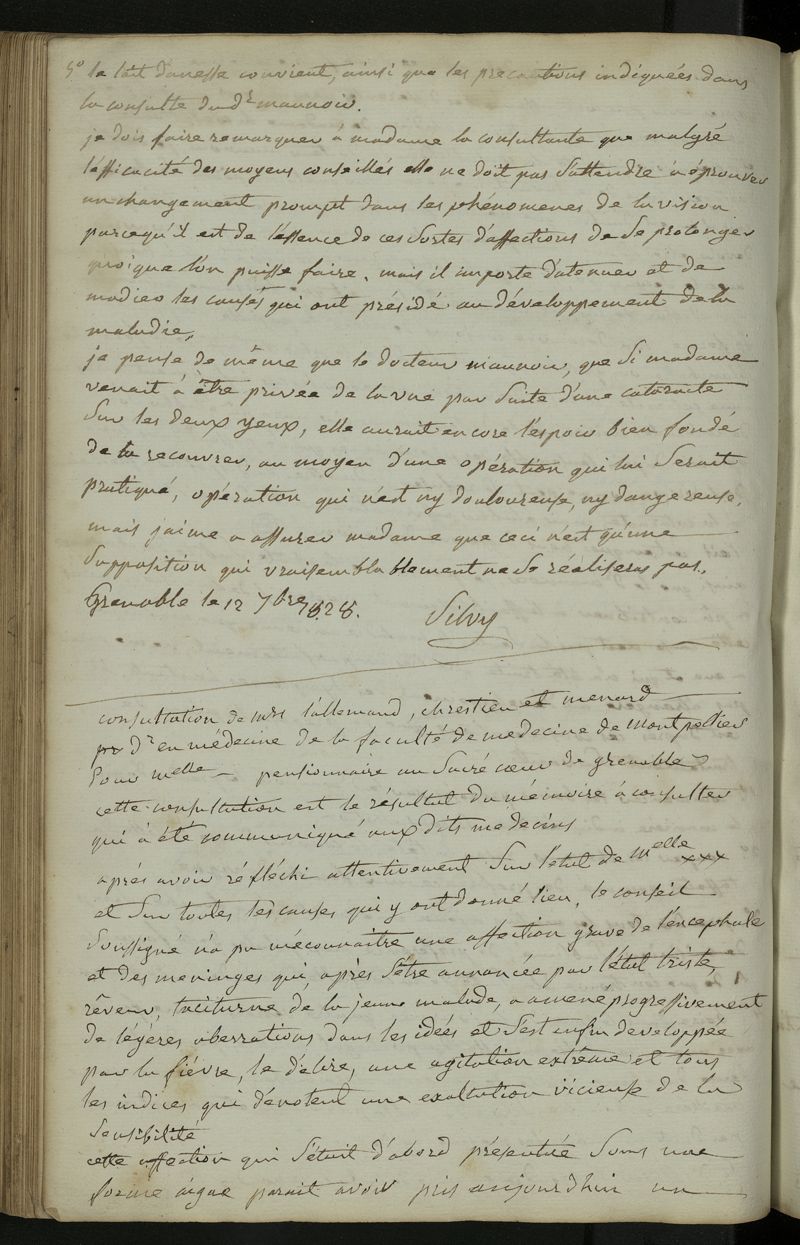 5º le lait danesse convient, ainsi que les precautions indiquées dans
la consulte du dr maunoir.
je dois faire remarquer à madame la consultante que malgré
l'efficacité des moyens conseillés elle ne doit pas s'attendre à éprouver
un changement prompt dans les phénomenes de la vision
parcequ'il est de l'essence de ces sortes d'affections de se prolonger
quoique l'on puisse faire. mais il importe d'atenuer et de
les causes qui ont présidé au développement de la
maladie,
je pense de même que le docteur maunoir, que si madame
venait à être privée de la vue par suite d'une cataracte
sur les deux yeux, elle aurait encore l'espoir bien fondé
de la recouvrer, au moyen d'une opération qui lui serait
pratiqué, opération qui n'est ny douloureuse, ny dangereuse,
mais j'aime a assurer madame que ceci n'est qu'une
supposition qui vraisemblablement ne se réalisera pas.
Grenoble le 12 7bre 1828. Silvy
consultation de mrs lallemand, chrestien et menard
pr Dr en médecine de la faculté de medecine de montpellier
pour melle – pensionnaire au Sacré cœur de grenoble
cette consultation est le résultat du mémoire à consulter
qui à été communiqué aux dits medecins
après avoir réfléchi attentivement sur l'etat de melle xxx
et sur toutes les causes qui y ont donné lieu, le conseil
soussigné n'a pu méconnaitre une affection grave de l'encephale
et des meninges qui, après s'être annoncée par l'état triste,
rêveur, taciturne de la jeune malade, a amené progressivement
de légères aberrations dans les idées et s'est enfin developpée
par la fièvre, le délire, une agitation extrême et tous
les indices qui dénotent une exaltation vicieuse de la
sensibilité
cette affection qui s'était d'abord présentée sous une
forme aigue parait avoir pris aujourdhui un